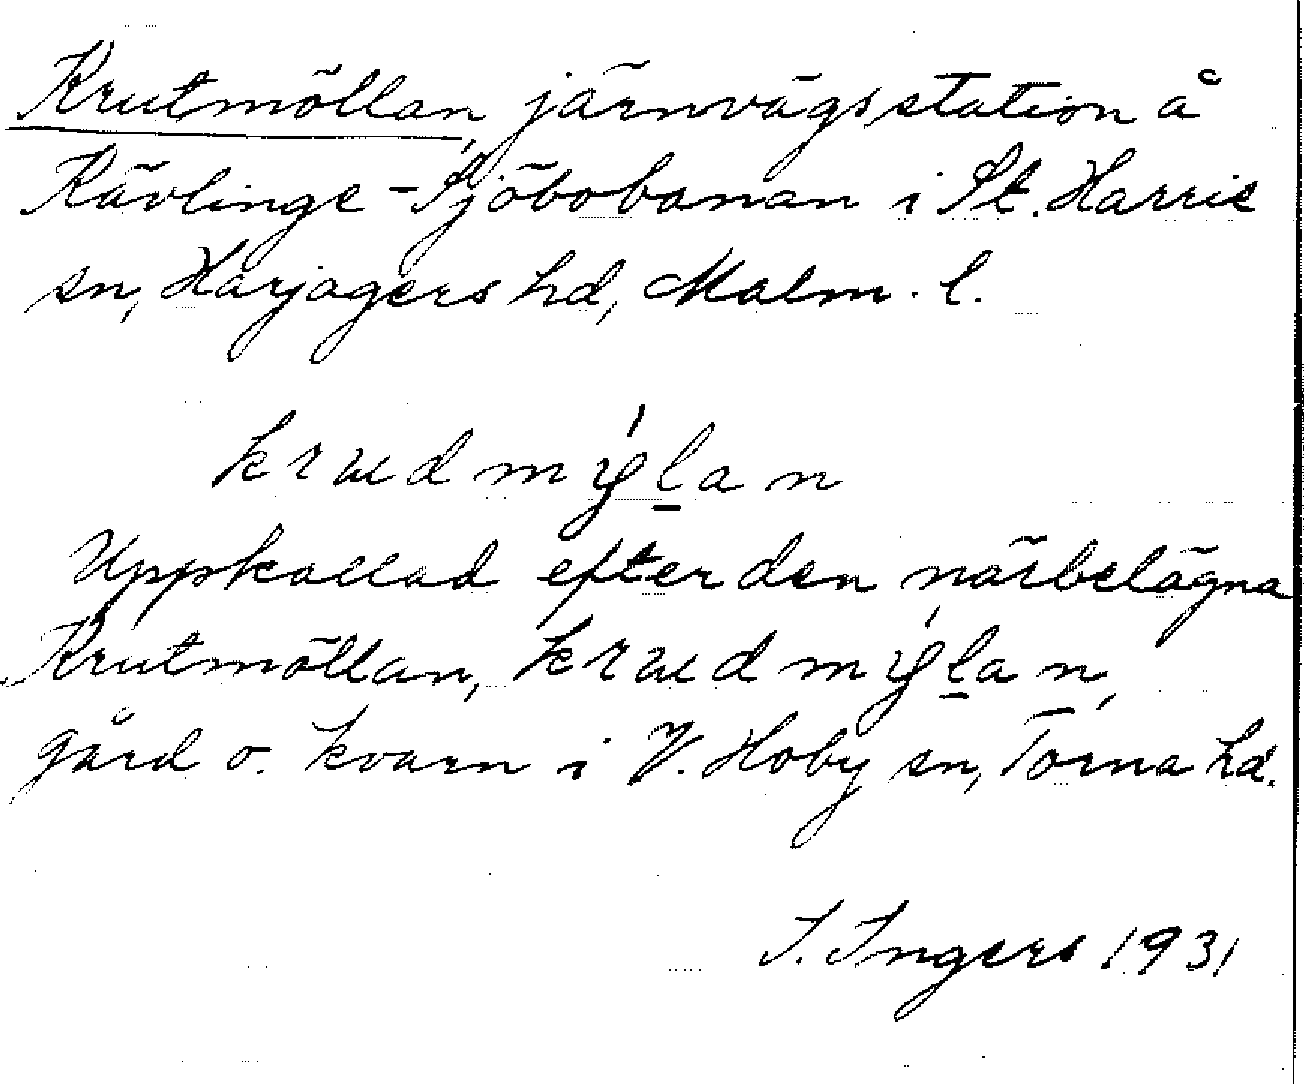 Krutmöllan, järnvägsstation å
Kävlinge-Sjöbobanan i St. Harrie
sn, Harjagers hd, Malm. l.
krudmýl̲an
Uppkallad efter den närbelägna
Krutmöllan, krudmýl̲an,
gård o. kvarn i V. Hoby sn, Torna hd.
I. Ingers 1931